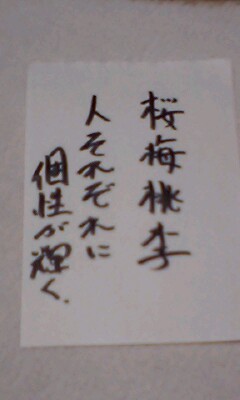 桜梅桃李
人それぞれに
個性が輝く.